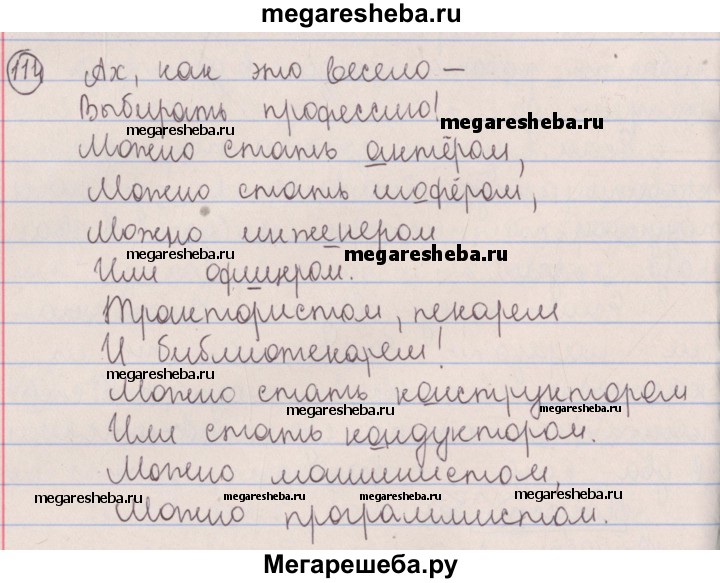 megaresheba.ru
114 Ах, как это весело —
Выбирать профессию!
megaresheba.ru megaresheba.ru
Можно стать актёром,
Можно стать шофёром,
Можно инженером
megaresheba.ru megaresheba.ru
Или офицером.
Трактористом, пекарем
И библиотекарем!
megaresheba.ru
Можно стать конструктором
megaresheba.ru megaresheba.ru
Или стать кондуктором.
Можно машинистом,
megaresheba.ru megaresheba.ru megaresheba.ru megaresheba.ru
Можно программистом.
Мегарешеба.ру